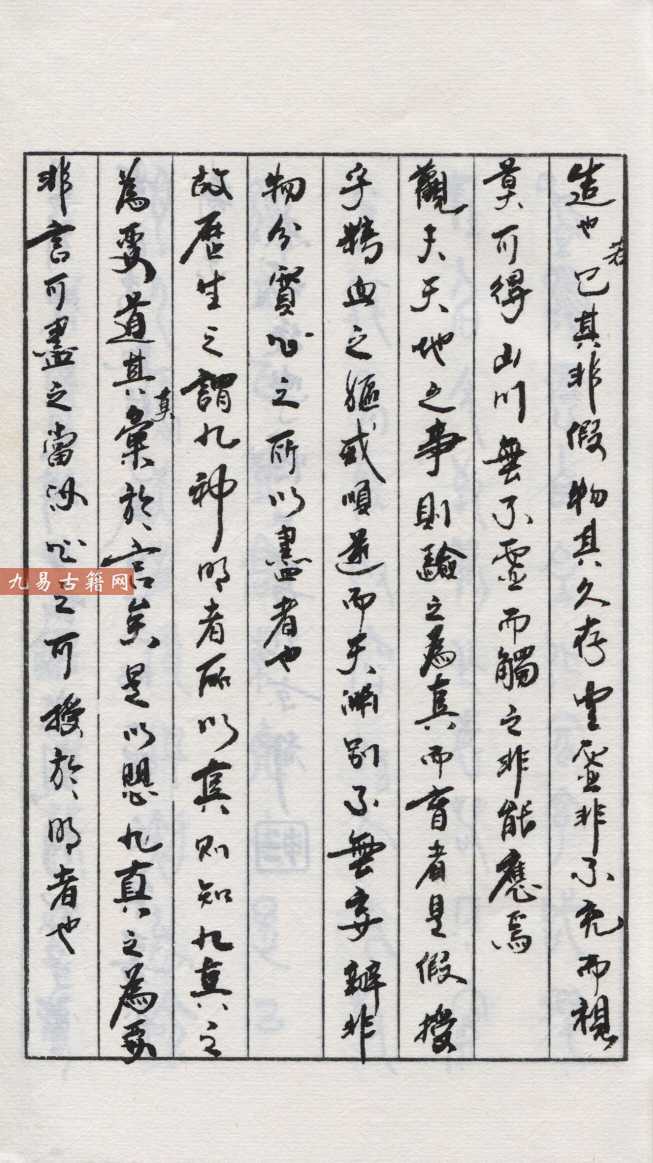 造也若已其非假物其久存實虛非不充而視
莫可得山川無不靈而觸之非能應焉
觀夫天地之事則驗之為真而盲者是假授
乎精血之軀或順逆而天淵別不無妄辨非
物分實心之所以盡者也
故歷生之謂九神明者所以真則知九真之
為要道其真彙於言矣是以思九真之為要
非言可盡之當心之可授於明者也
九易古籍网